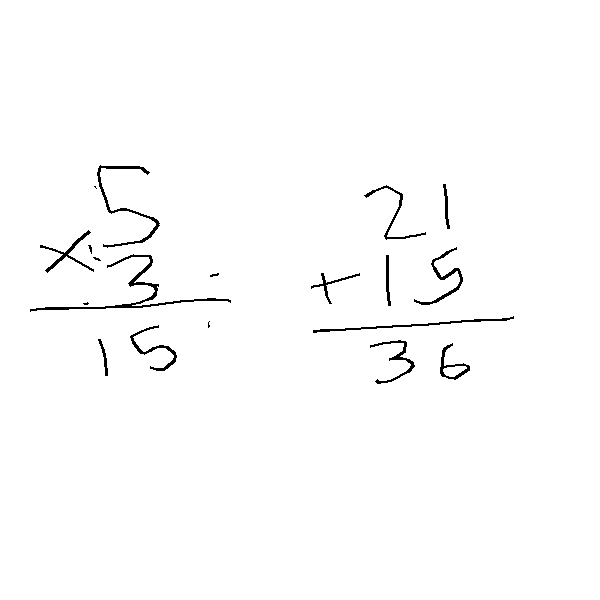 5
× 3
15
21
+ 15
36